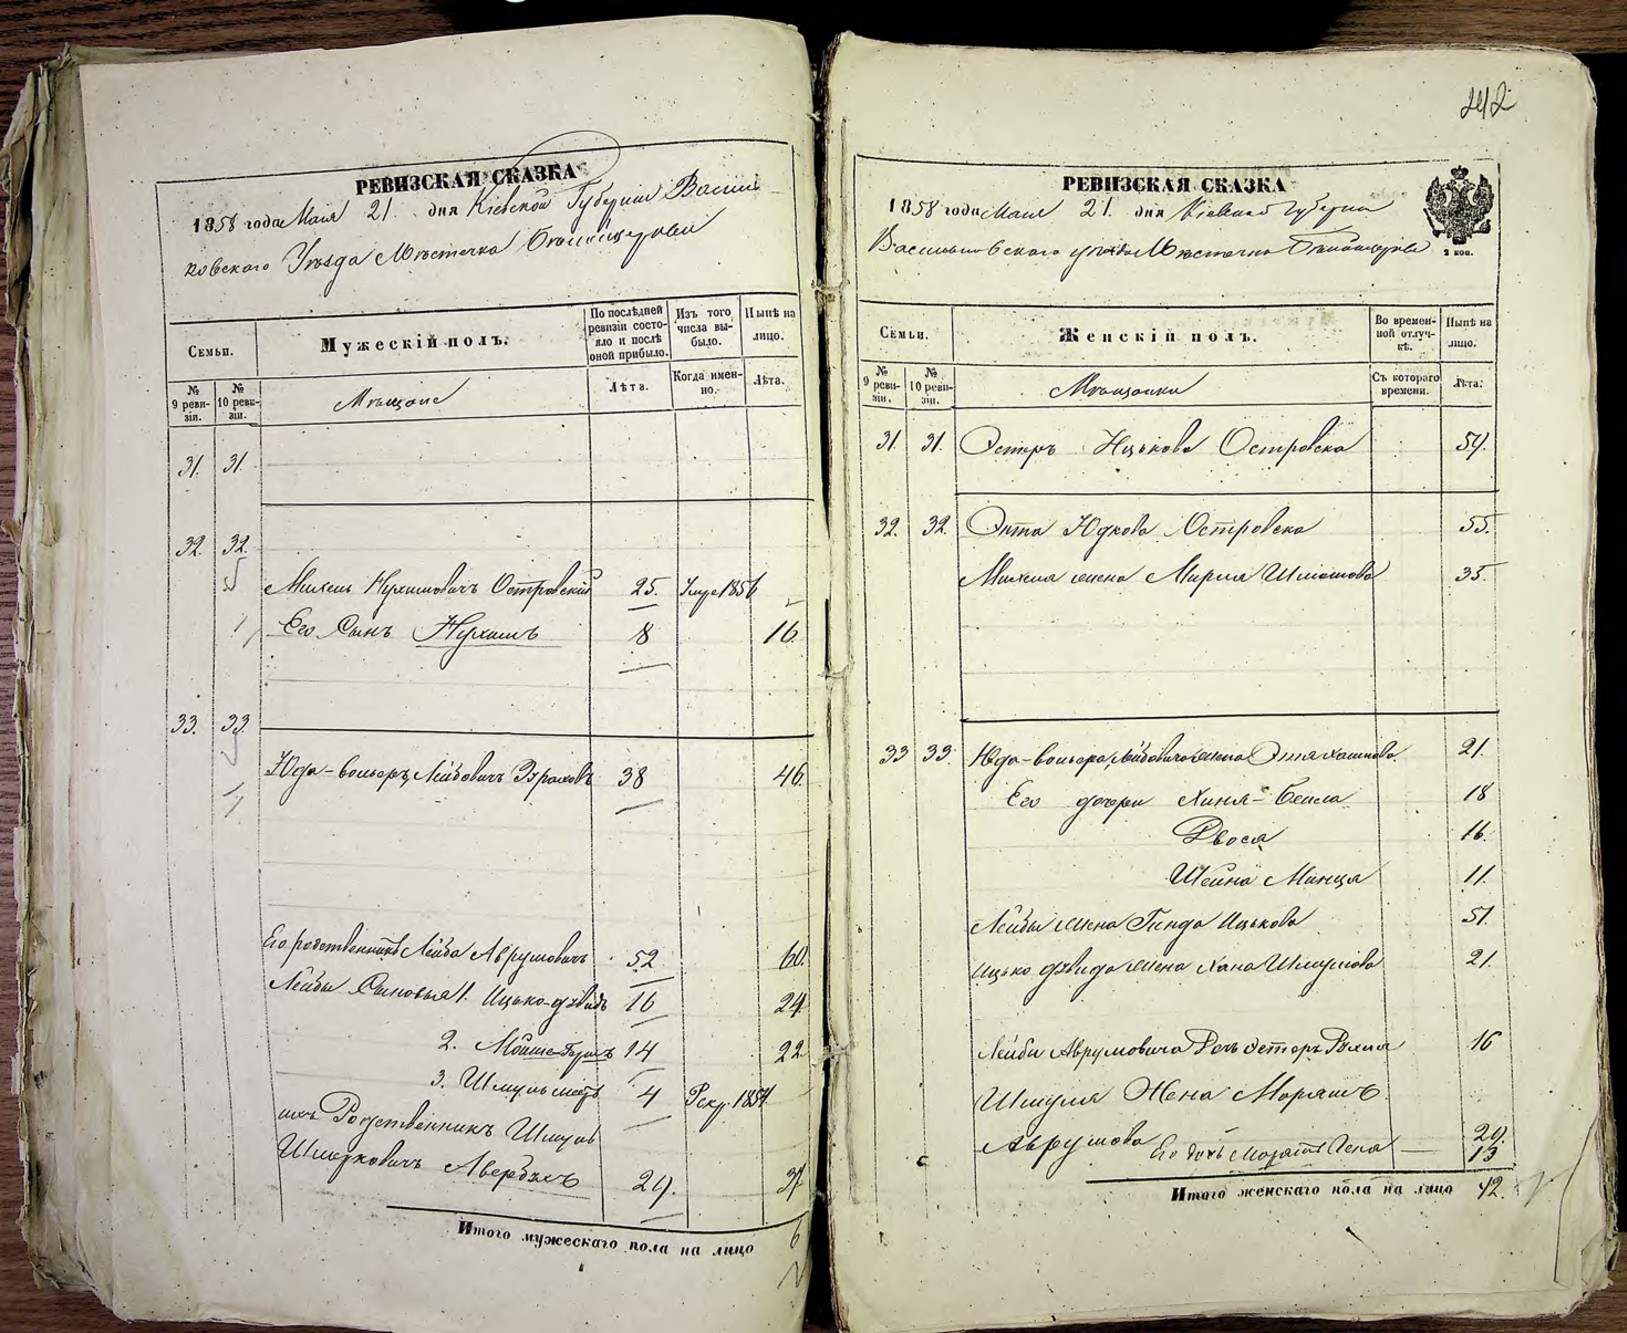 РЕВИЗСКАЯ СКАЗКА
1858 года Маія 21. дня Кіевской Губерніи Василь-
ковскаго Уѣзда Мѣстечка
Семьи.
Мужескій полъ.
По послѣдней ревизіи состояло и послѣ оной прибыло.
Изъ того числа выбыло.
Нынѣ на лицо.
№ 9 ревизіи.
№ 10 ревизіи.
Мѣщане
Лѣта.
Когда именно.
Лѣта.
31. 31.
32. 32.
Михель Нухимовичъ Островскій 25. Умре 1856
Его Сынъ Нухимъ 8 16.
33. 33.
Юда-вольоръ Лейбовичъ 38 46.
Его родственникъ Лейба Аврумовичъ 52 60.
Лейбы Сыновья 1. Ицько-дувидъ 16 24.
2. Мойше-Гершъ 14 22
3. Шмуль 4 Рекр. 1854.
ихъ Родственникъ Шмуль
Авербухъ 29. 37.
Итого мужескаго пола на лицо 6
242
РЕВИЗСКАЯ СКАЗКА
1858 года Маія 21. дня Кіевской Губерніи
Васильковскаго уѣзда Мѣстечка
2 коп.
Семьи.
Женскій полъ.
Во временной отлучкѣ.
Нынѣ на лицо.
№ 9 ревизіи.
№ 10 ревизіи.
Мѣщанки
Съ котораго времени.
Лѣта.
31. 31. Эстеръ Ицькова Островска 54.
32. 32. Энта Юдкова Островска 55.
Михеля жена Мирля 35.
33 33. Юда-вольора Лейбовича жена 21.
Его дочери Хиня-Бейла 18
Двося 16.
Шейна Минця 11.
Лейбы жена Гинда Ицькова 51.
Ицько дувида жена Хана Шмулова 21.
Лейбы Аврумовича Дочь Эстеръ Рухля 16
Шмуля Жена Маріямъ
Аврумова 29.
Его дочь 13
Итого женскаго пола на лицо 12.